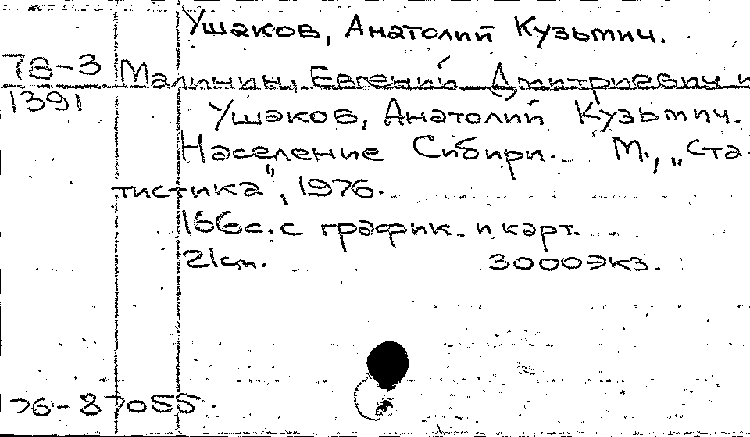 Ушаков, Анатолий Кузьмич.
78-3 Малинин, Евгений Дмитриевич и
1391 Ушаков, Анатолий Кузьмич.
Население Сибири. М., „Ста-
тистика", 1976.
166с. с график. и карт.
21см. 3000экз.
76-87055